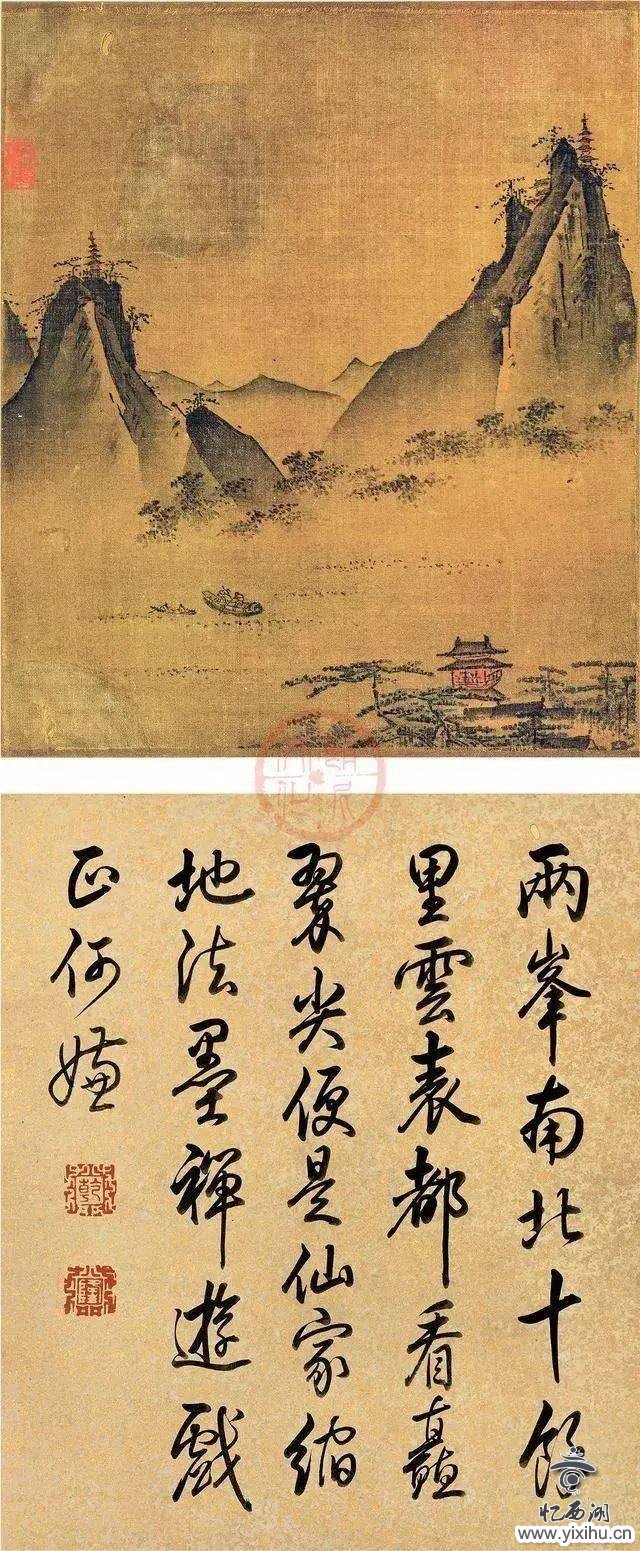 兩峯南北十餘
里雲表都看矗
翠尖便是仙家縮
地法墨禪遊戲
正何嫌
忆西湖
www.yixihu.cn